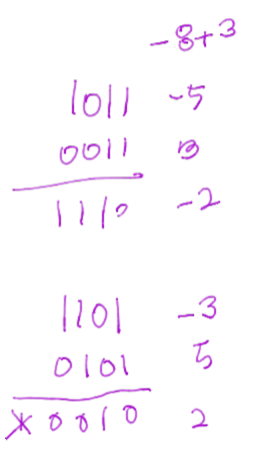 -8+3
1011 -5
0011 3
1110 -2
1101 -3
0101 5
x0010 2